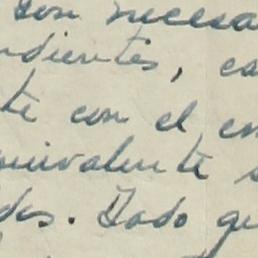 son necesa
ndientes, es
te con el em
quivalente s
dos. Dado qu